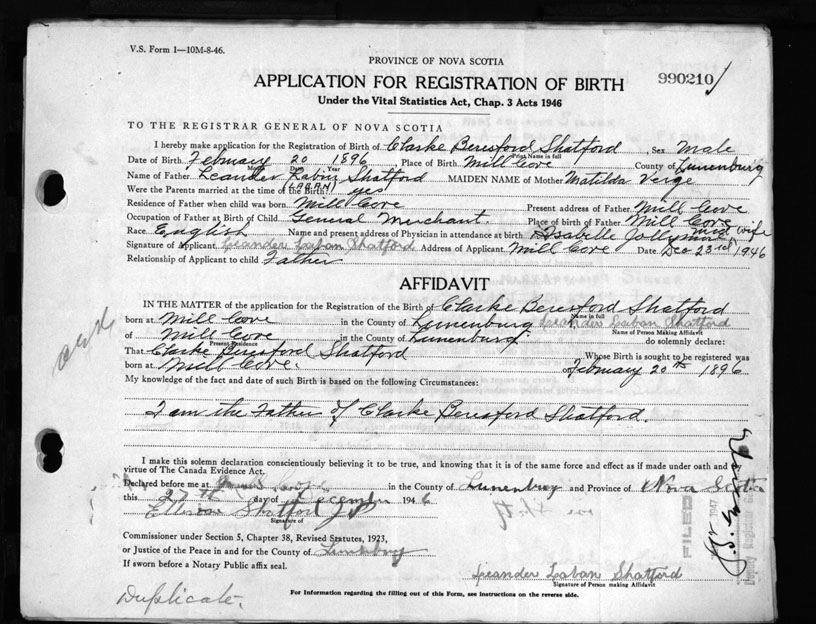 V.S. Form 1—10M-8-46.
PROVINCE OF NOVA SCOTIA
APPLICATION FOR REGISTRATION OF BIRTH
990210
Under the Vital Statistics Act, Chap. 3 Acts 1946
TO THE REGISTRAR GENERAL OF NOVA SCOTIA
I hereby make application for the Registration of Birth of Clarke Beresford Shatford Sex Male
Print Name in full
Date of Birth February 20 1896 Place of Birth Mill Cove County of Lunenburg
Month Day Year
Name of Father Leander Laban Shatford MAIDEN NAME of Mother Matilda Verge
(LABAN)
Were the Parents married at time of the Birth? yes
Residence of Father when child was born Mill Cove Present address of Father Mill Cove
Occupation of Father at Birth of Child General Merchant. Place of birth of Father Mill Cove
Race English Name and present address of Physician in attendance at birth Isabelle Jollymore mid wife
Signature of Applicant Leander Laban Shatford Address of Applicant Mill Cove Date Dec 23rd 1946
Relationship of Applicant to child Father
AFFIDAVIT
IN THE MATTER of the application for the Registration of the Birth of Clarke Beresford Shatford
Name in full
born at Mill Cove in the County of Lunenburg Leander Laban Shatford
Name of Person Making Affidavit
of Mill Cove in the County of Lunenburg do solemnly declare:
Present Residence
That Clarke Beresford Shatford Whose Birth is sought to be registered was
born at Mill Cove. on February 20th 1896
My knowledge of the fact and date of such Birth is based on the following Circumstances:
I am the Father of Clarke Beresford Shatford.
I make this solemn declaration conscientiously believing it to be true, and knowing that it is of the same force and effect as if made under oath and by
virtue of The Canada Evidence Act.
Declared before me at in the County of Lunenburg and Province of Nova Scotia
this 27th day of December 1946
Shatford J.P.
Signature of
Commissioner under Section 5, Chapter 38, Revised Statutes, 1923,
or Justice of the Peace in and for the County of Lunenburg
If sworn before a Notary Public affix seal.
Leander Laban Shatford
Signature of Person making Affidavit
Duplicate.
For Information regarding the filling out of this Form, see Instructions on the reverse side.
FILED